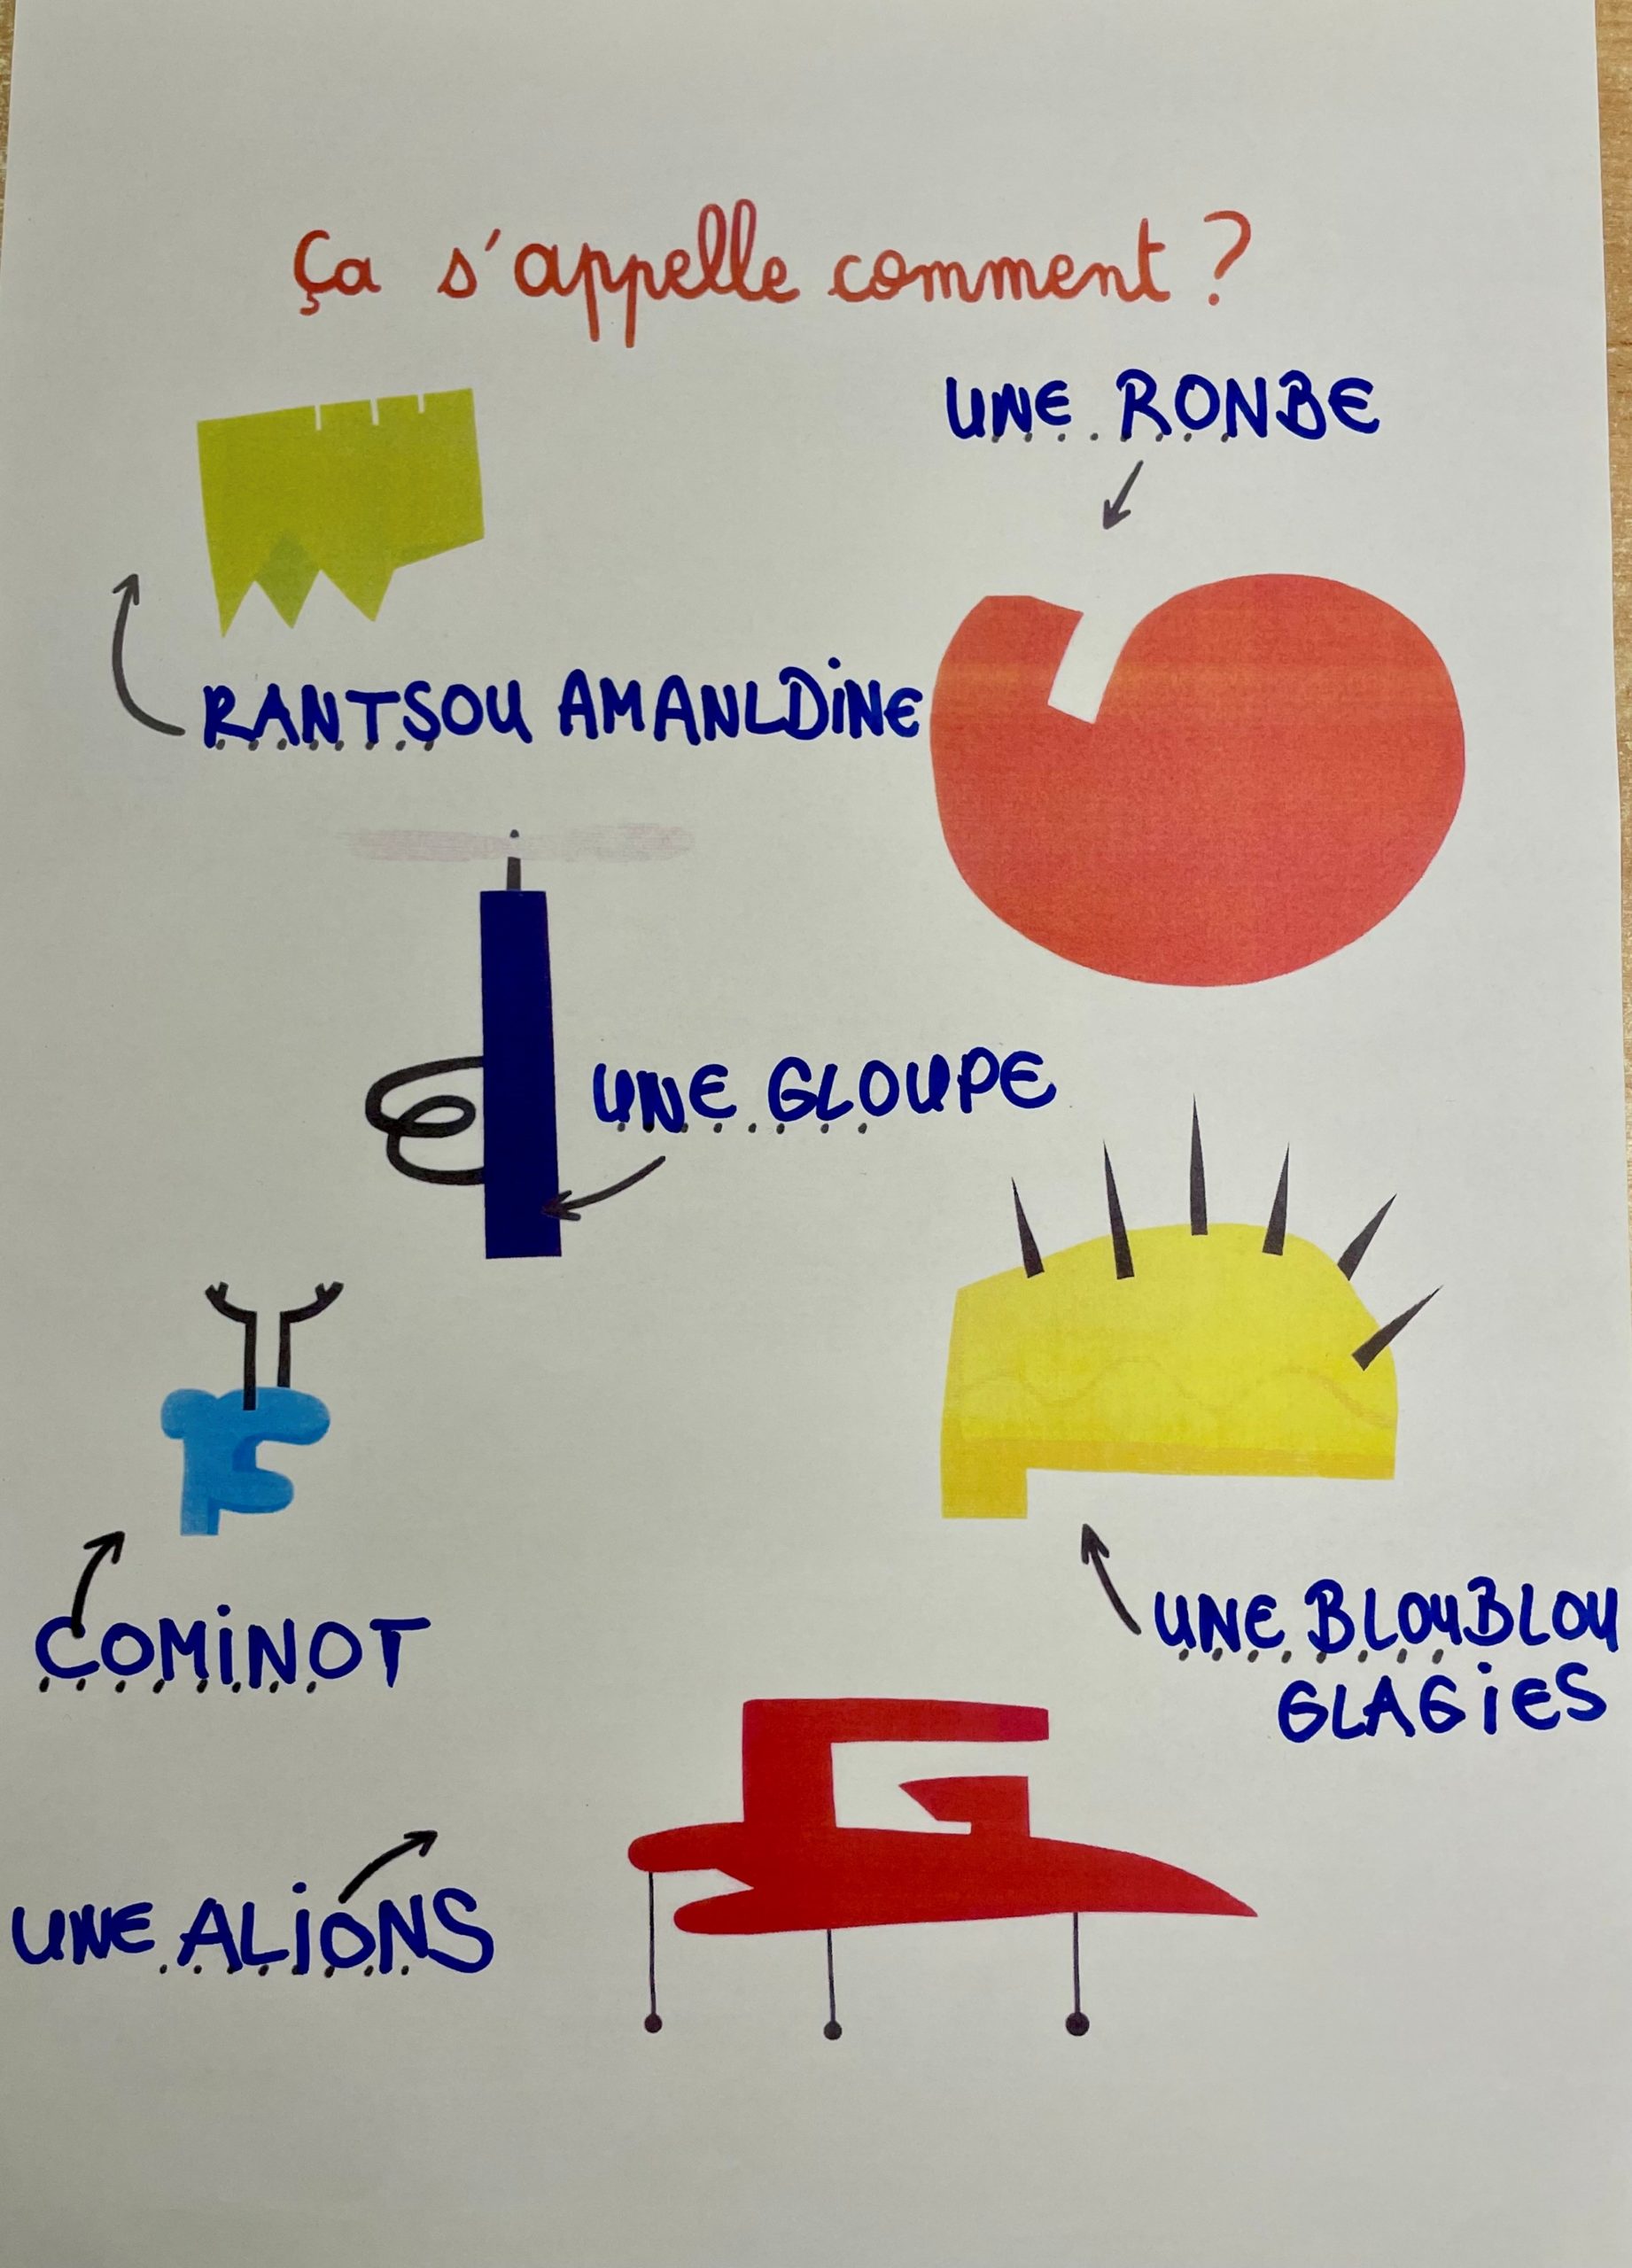 Ça s'appelle comment ?
UNE RONBE
RANTSOU AMANLDiNE
UNE GLOUPE
COMiNOT
UNE BLOUBLOU
GLAGiES
UNE ALiONS